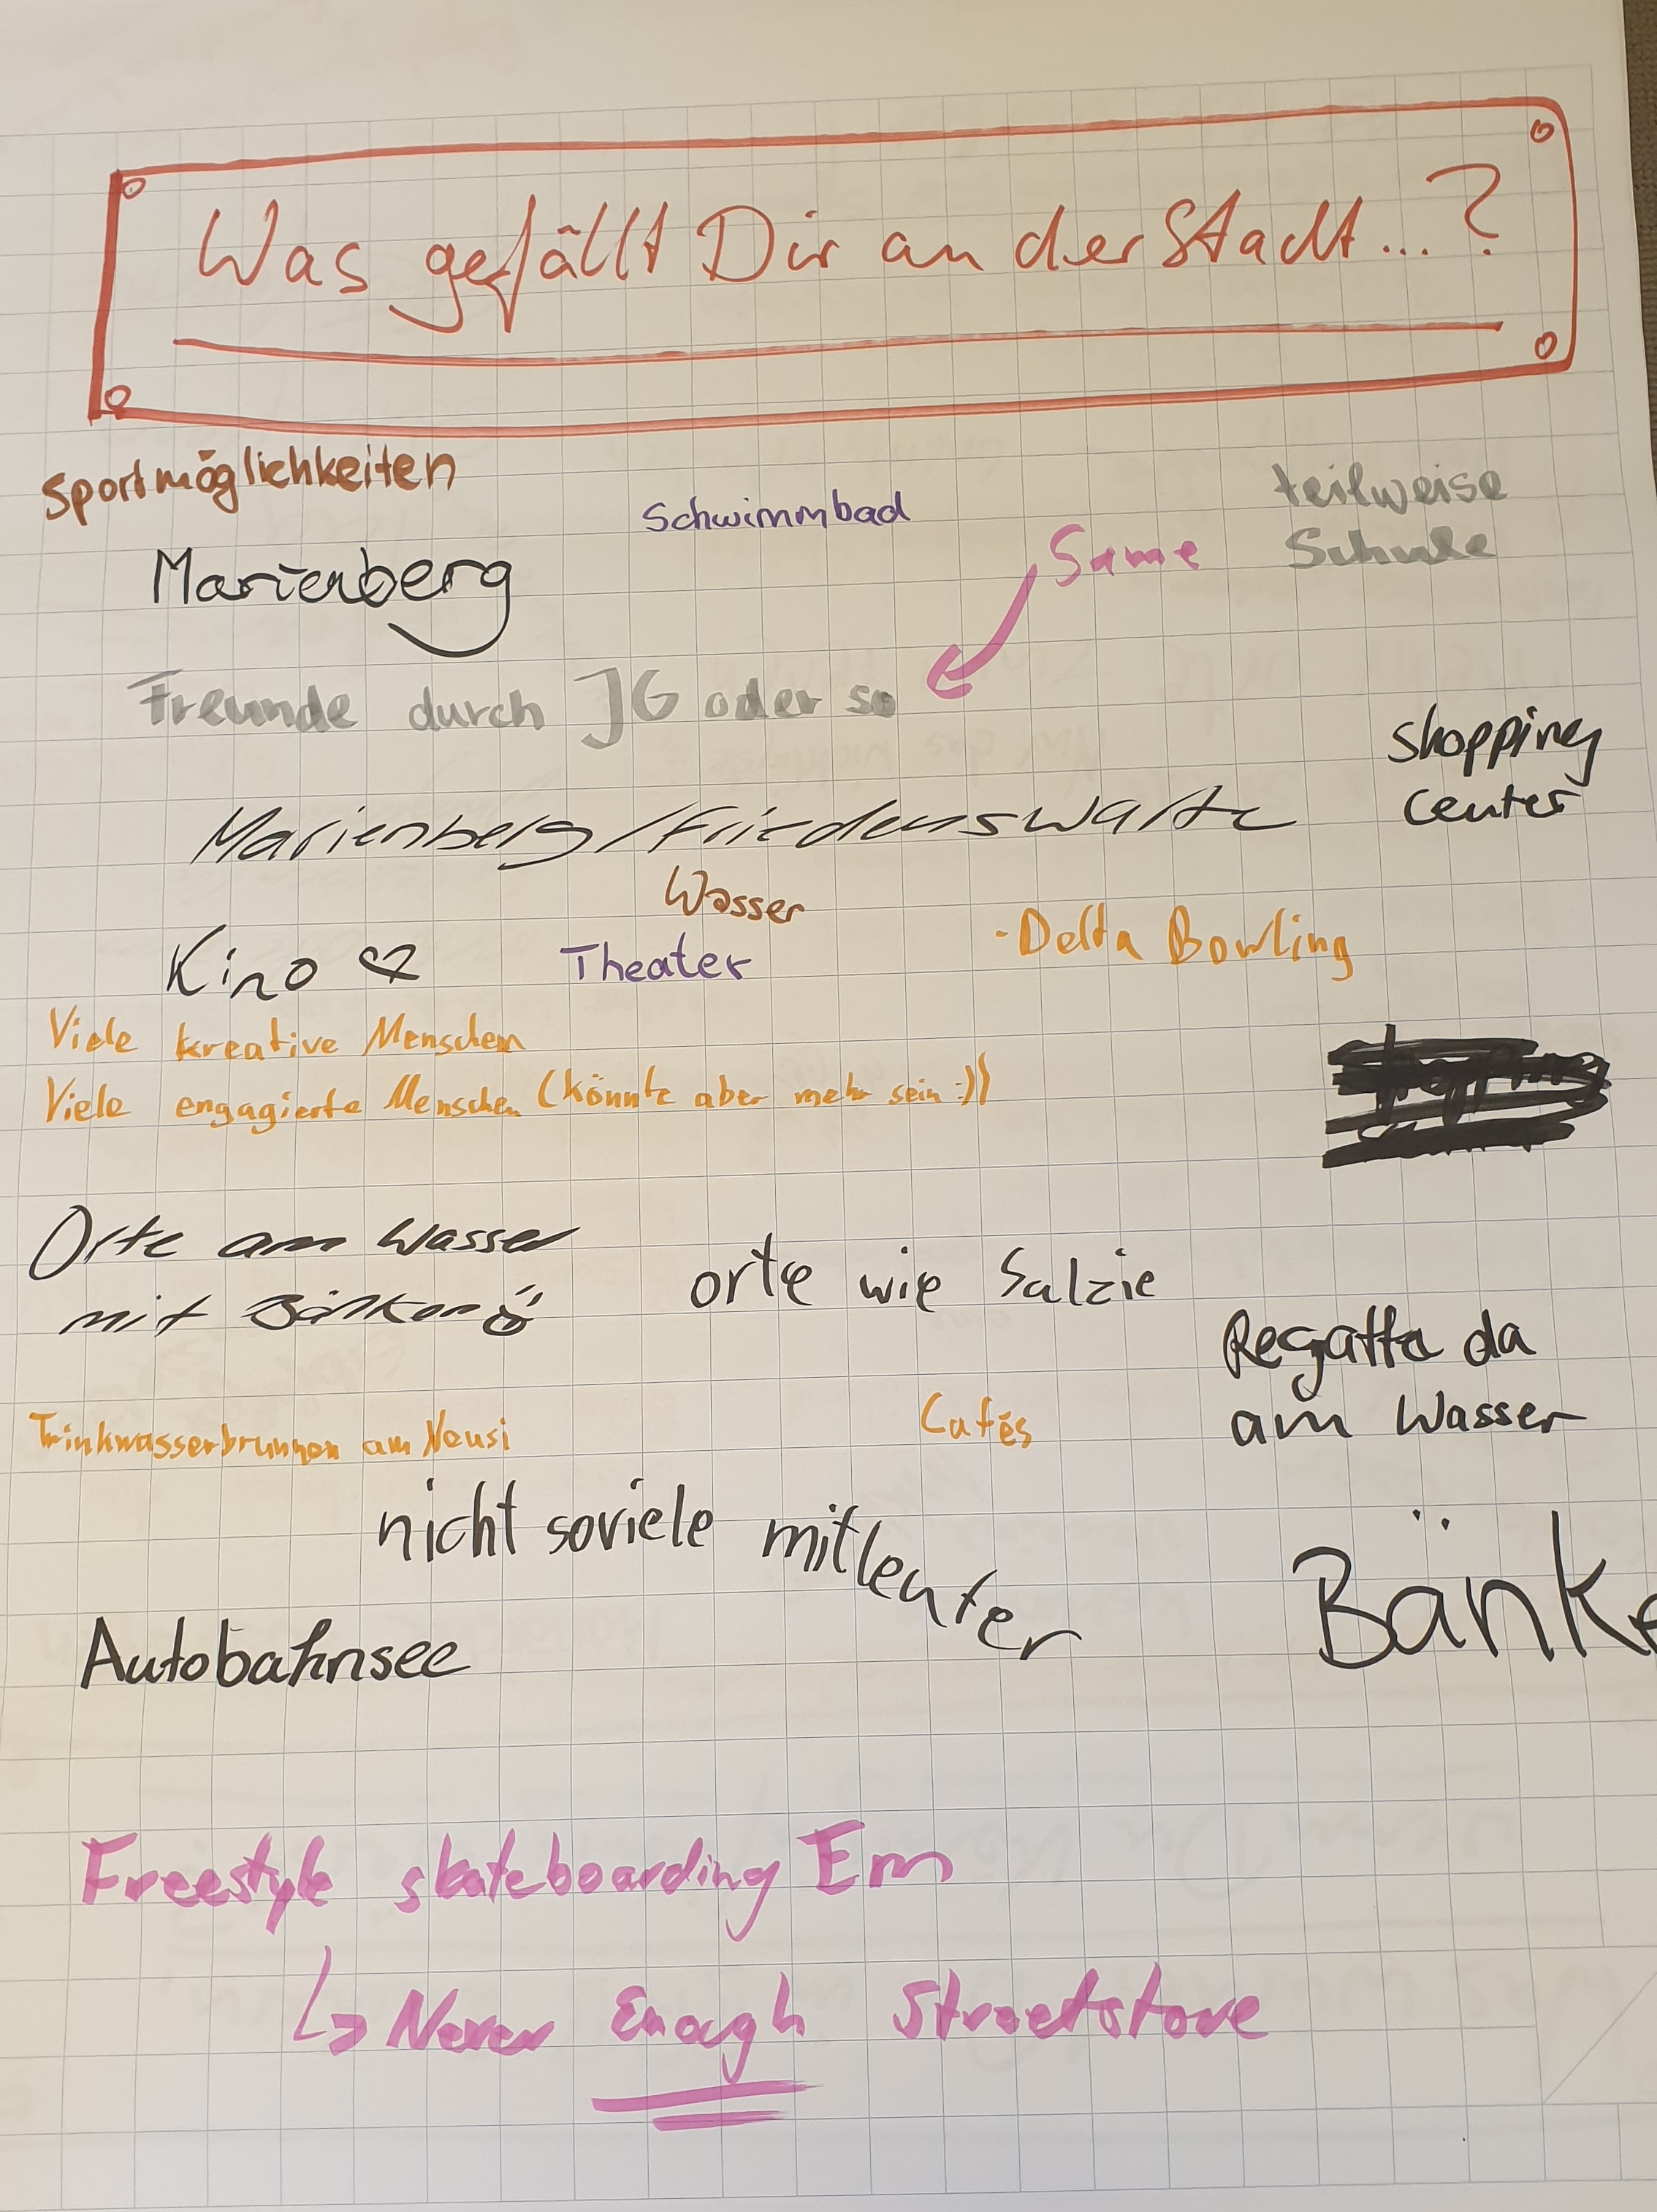 Was gefällt Dir an der Stadt...?
Sportmöglichkeiten
Schwimmbad
teilweise
Schule
Same
Marienberg
Freunde durch JG oder so
shopping
center
Marienberg/Friedenswarte
Wasser
Kino ♡
Theater
-Delta Bowling
Viele kreative Menschen
Viele engagierte Menschen (könnte aber mehr sein :))
Orte am Wasser
mit Bänken
orte wie Salzie
Regatta da
am Wasser
Trinkwasserbrunnen am Neusi
Cafés
nicht soviele mitleuter
Bänke
Autobahnsee
Freestyle skateboarding Em
↳ Never Enough Streetstore